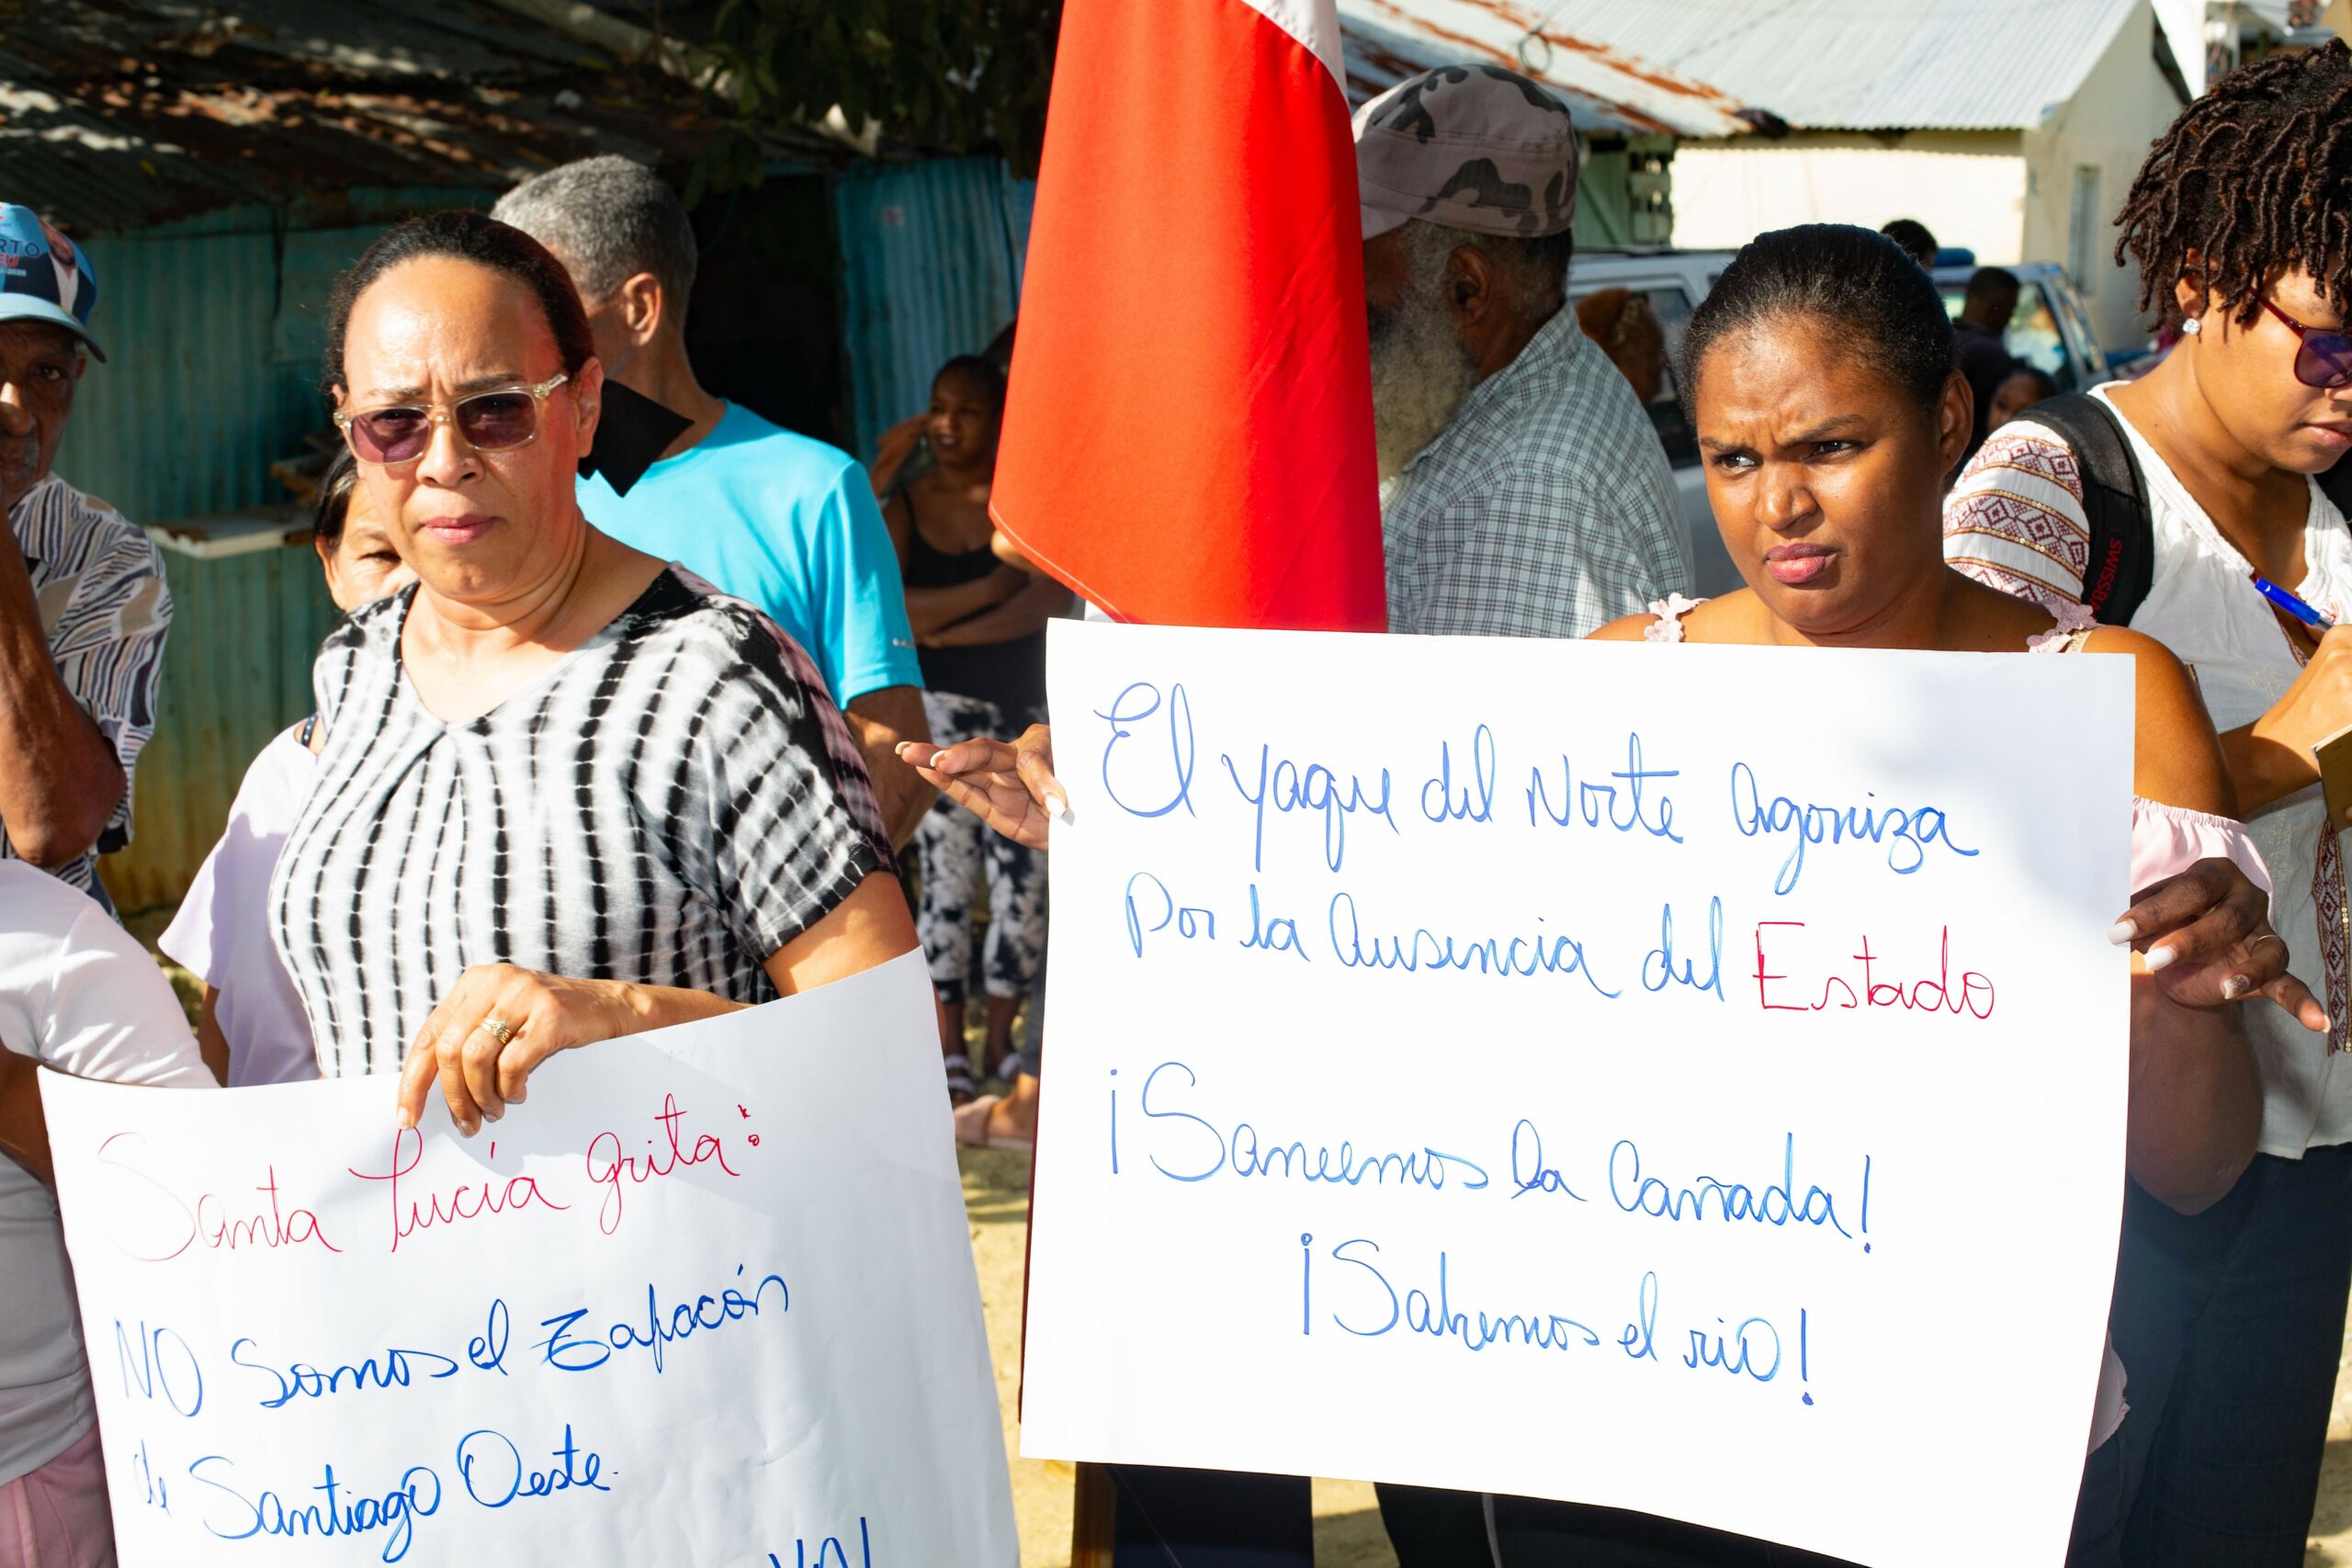 Santa Lucía grita:
NO Somos el Zafacón
de Santiago Oeste.
YA!
El Yaque del Norte Agoniza
Por la Ausencia del Estado
¡Saneemos la Cañada!
¡Salvemos el rio!
RTO
SWISSB